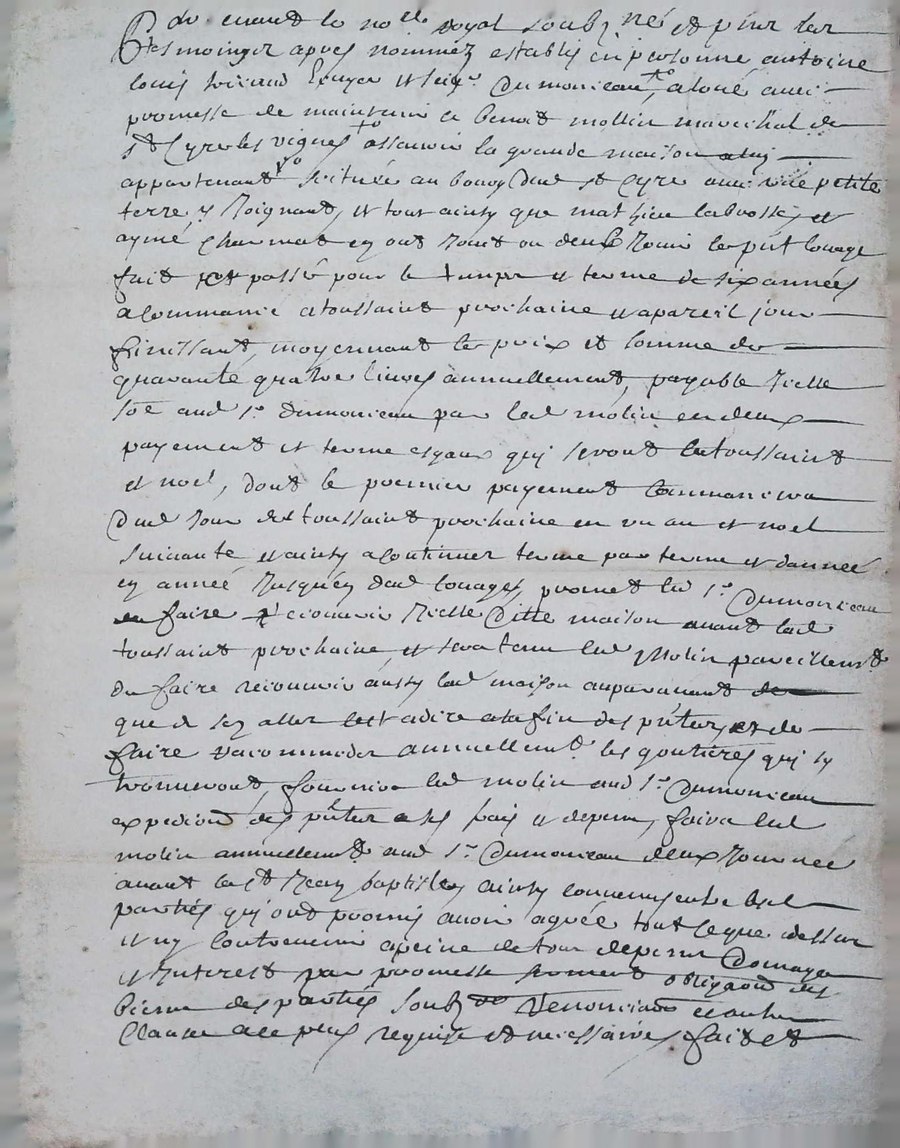 Pdv. euant le no.re royal soubz.né et pnt les
tesmoingz apres nommez establis en personne antoine
louis Escuyer et seigr Dumonceau, aloué avec
promesse de maintenir a Benoit mollin mareichal de
st Cyre les vignes assauoir la grande maison
appartenant scituée au bourg dud st Cyre auec une petite
terre y Joignant, et tout ainsy que mathieu labrosse et
aymé Charmat en ont Jouit ou deub Jouir le pnt louage
fait et passé pour le temps et terme de six années
a commancé a toussaint prochaine et a pareil jour
finissant, moyennant le prix et somme de
quarante quatre liures annuellement, payable Jcelle
soe aud sr dumonceau par led molin en deux
payement et terme esgaux qui seront la toussaint
et noel, dont le premier payement commancera
dud Jour de toussaint prochaine en un an et noel
suiuante et ainsy a continuer terme par terme et dannée
en année Jusques dud louages, promet led sr Dumonceau
faire recouurir Jcelle ditte maison auant lad
toussaint prochaine et sera tenu led Molin pareillemt
de faire recouurir aussy lad maison auparauant
que de sen aller cest a dire a la fin des pntes et de
faire racommoder annuellemt les goutieres qui sy
trouueront, fournira led molin aud sr Dumonceau
expedion des pntes a ses frais et depens, faira led
molin annuellemt aud sr Dumonceau deux Journee
auant la st Jean baptiste ainsy conuenu entre lesd
parties qui ont promis auoir agrée tout ce que dessus
et ny contreuenir a peine de tous depens Domages
et Jnterest par promesse serment obligaon des
biens des parties soubz Renonciaon et autre
Clause a ce plus requise et necessaires fait et